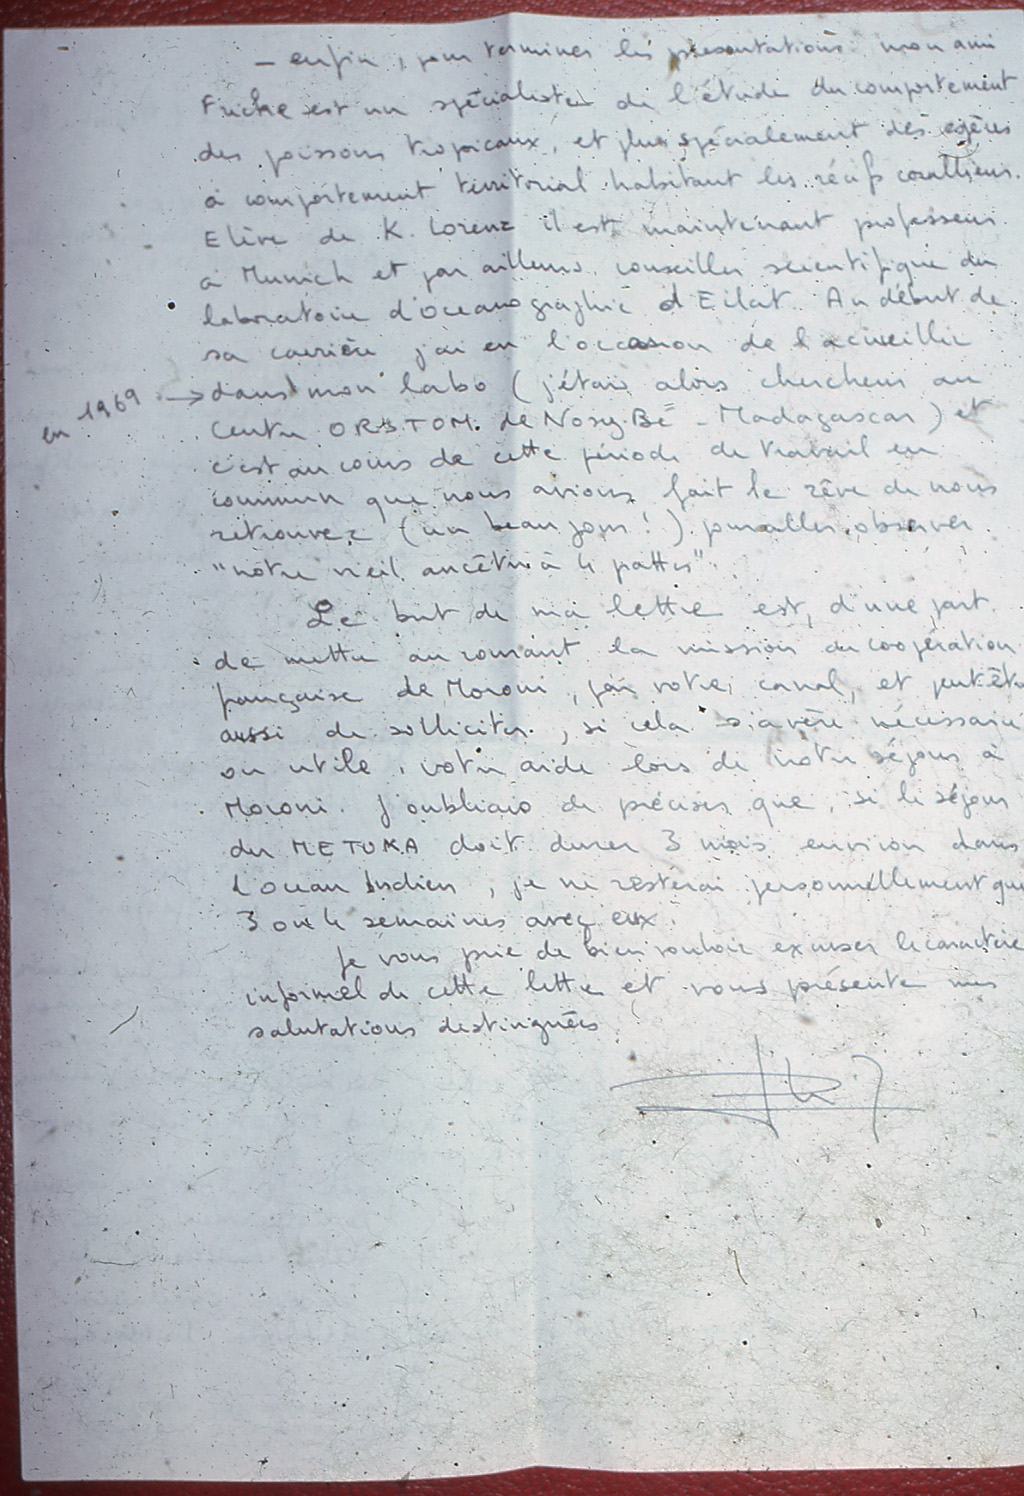 — enfin, pour terminer les présentations mon ami
Fricke est un spécialiste de l'étude du comportement
des poissons tropicaux, et plus spécialement des espèces
à comportement territorial habitant les récifs coralliens.
Elève de K. Lorenz il est maintenant professeur
à Munich et par ailleurs conseiller scientifique du
laboratoire d'océanographie d'Eilat. Au début de
sa carrière j'ai eu l'occasion de l'accueillir
en 1969 → dans mon labo (j'étais alors chercheur au
Centre ORSTOM de Nosy-Bé - Madagascar) et
c'est au cours de cette période de travail en
commun que nous avions fait le rêve de nous
retrouver (un beau jour !) pour aller observer
"notre vieil ancêtre à 4 pattes".
Le but de ma lettre est, d'une part
de mettre au courant la mission de coopération
française de Moroni, par votre canal, et peut-être
aussi de solliciter, si cela s'avère nécessaire
ou utile, votre aide lors de notre séjour à
Moroni. J'oubliais de préciser que, si le séjour
du METOKA doit durer 3 mois environ dans
l'Océan Indien, je ne resterai personnellement que
3 ou 4 semaines avec eux.
Je vous prie de bien vouloir excuser le caractère
informel de cette lettre et vous présente mes
salutations distinguées